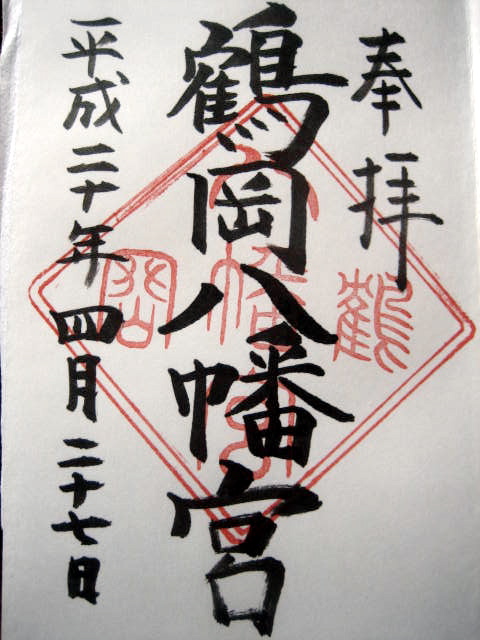 奉拝
鶴岡八幡宮
平成二十年四月二十七日
鶴
八幡宮
岡